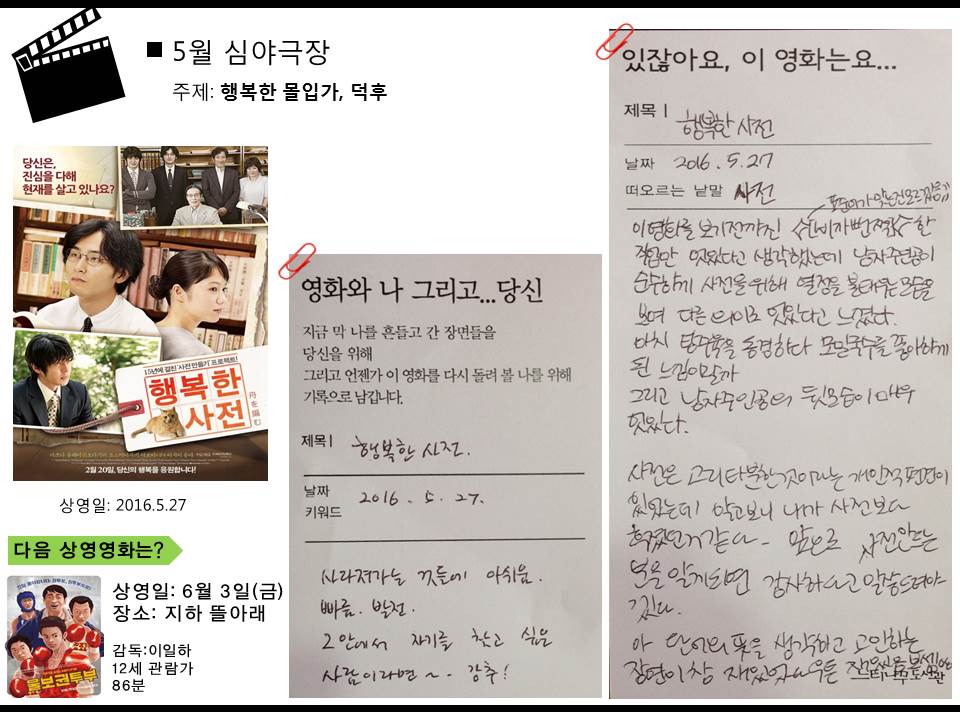 5월 심야극장
주제: 행복한 몰입가, 덕후
당신은,
진심을 다해
현재를 살고 있나요?
15년에 걸친 '사전 만들기' 프로젝트!
행복한
사전
舟を編む
2월 20일, 당신의 행복을 응원합니다!
상영일: 2016.5.27
다음 상영영화는?
울보권투부
상영일: 6월 3일(금)
장소: 지하 뜰아래
감독:이일하
12세 관람가
86분
영화와 나 그리고...당신
지금 막 나를 흔들고 간 장면들을
당신을 위해
그리고 언젠가 이 영화를 다시 돌려 볼 나를 위해
기록으로 남깁니다.
제목 | 행복한 사전.
날짜 2016. 5. 27.
키워드
사라져가는 것들에 아쉬움.
빠름. 발전.
그 안에서 자기를 찾고 싶은
사람이라면 ~. 강추!
있잖아요, 이 영화는요...
제목 | 행복한 사전
날짜 2016. 5. 27
떠오르는 낱말 사전
이 영화를 보기전까진 한
직업만 멋있다고 생각했는데 남자주인공이
순수하게 사전을 위해 열정을 불태우는 모습을
보며 다른 의미로 멋있다고 느꼈다.
마치 탕수육을 동경하다 모밀국수를 좋아하게
된 느낌이랄까
그리고 남자주인공의 뒷모습이 매우
멋있다.
사전은 고리타분한것이라는 개인적 편견이
있었는데 알고보니 내가 사전보다
했던것 같다. 앞으로 사전만드는
분을 알게되면 감사하다고 말씀드려야
겠다.
아 단어의 뜻을 생각하고 고민하는
장면이 참 재밌었
느티나무도서관